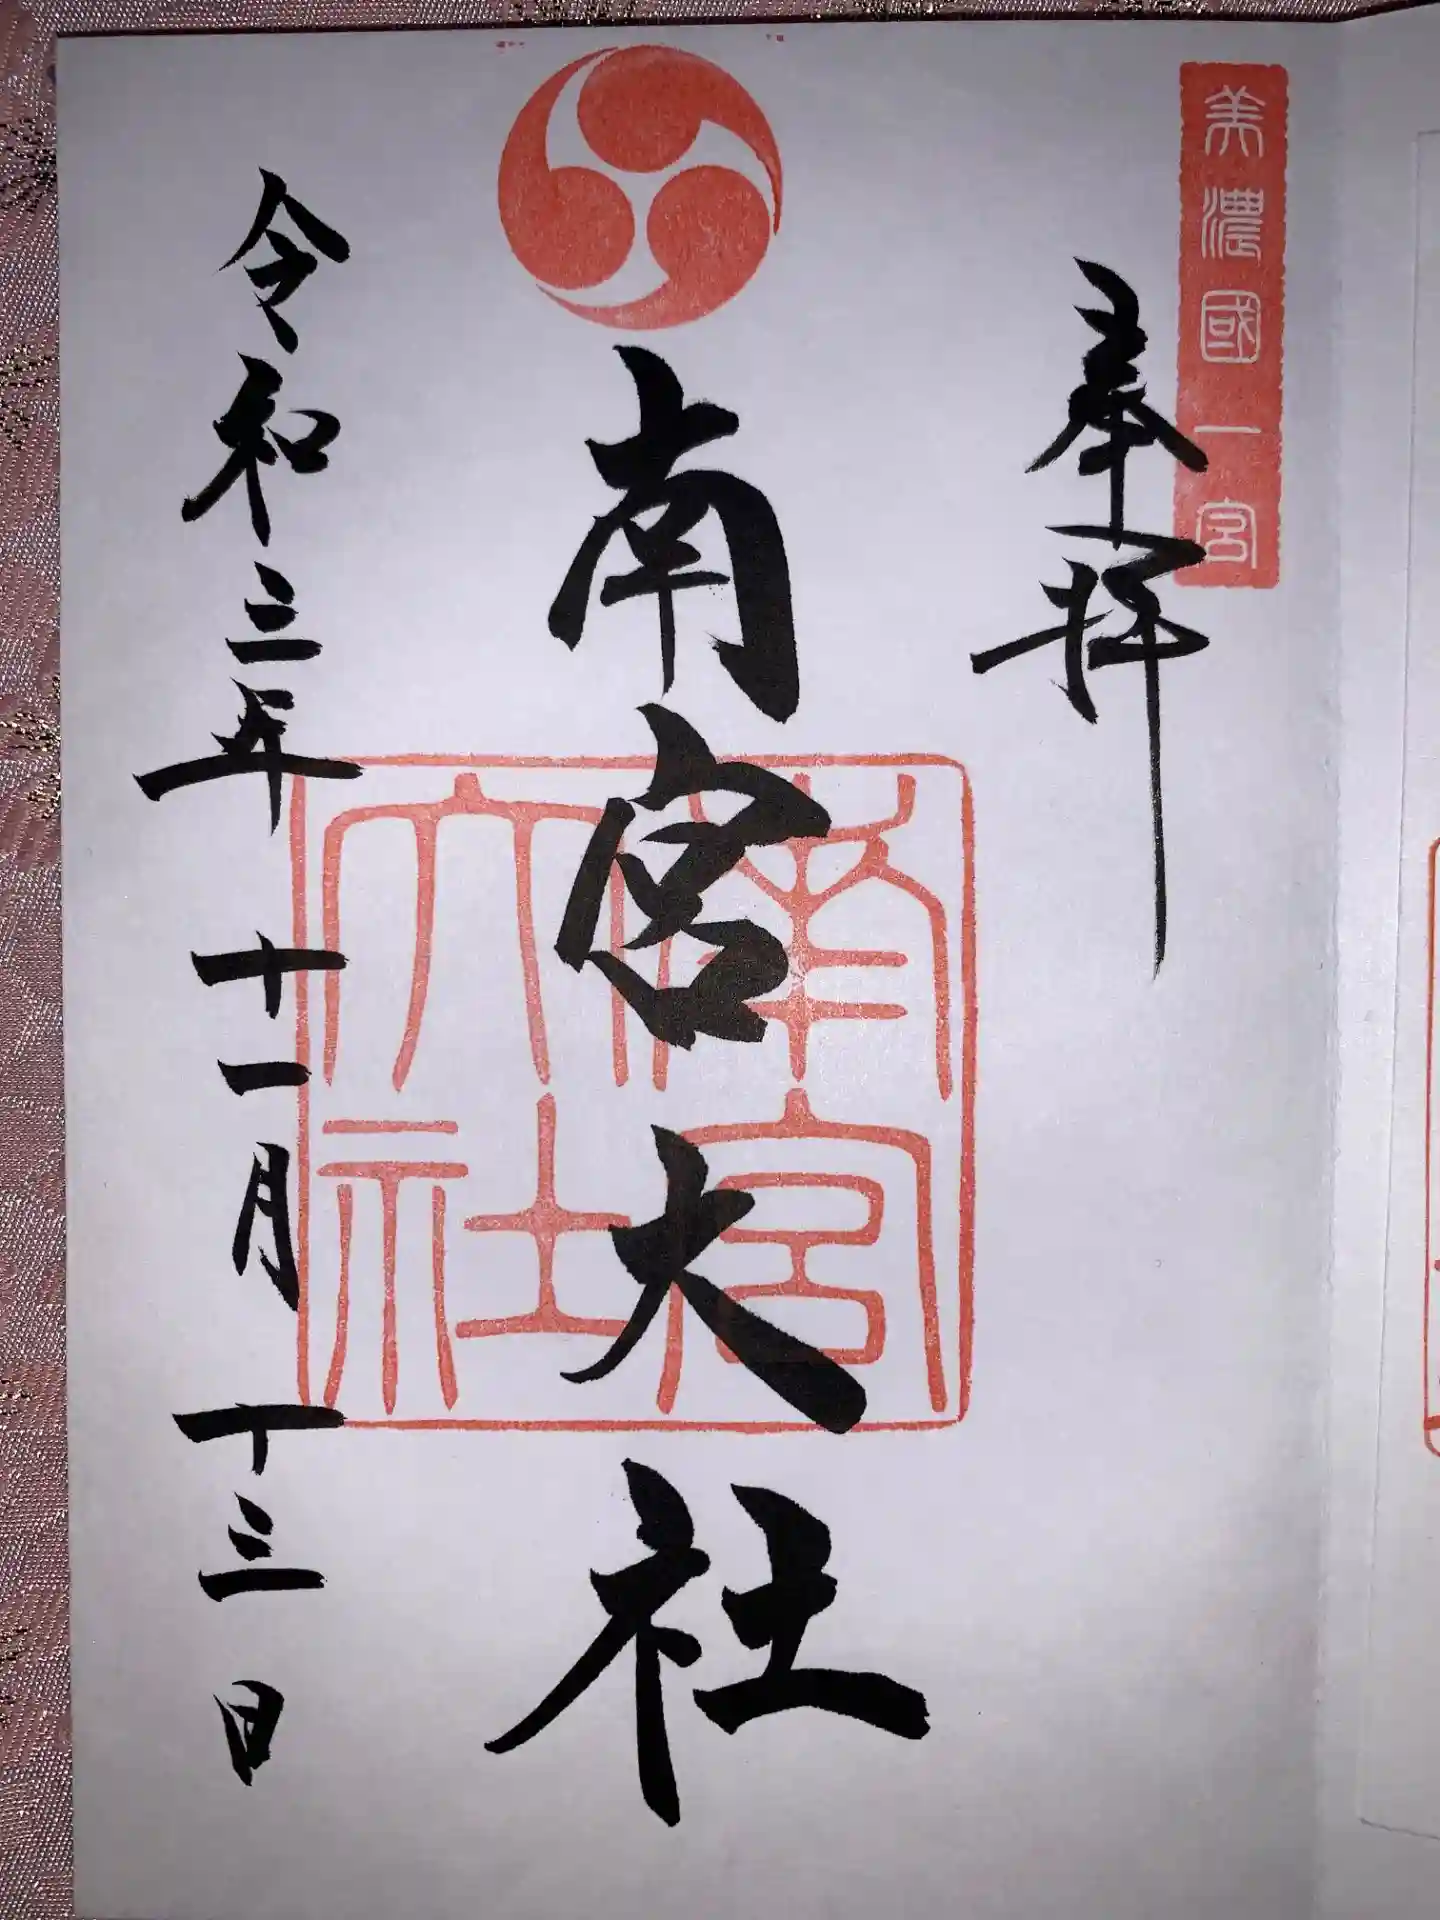 美濃國一宮
奉拝
南宮大社
南宮
大社
令和三年十一月十三日